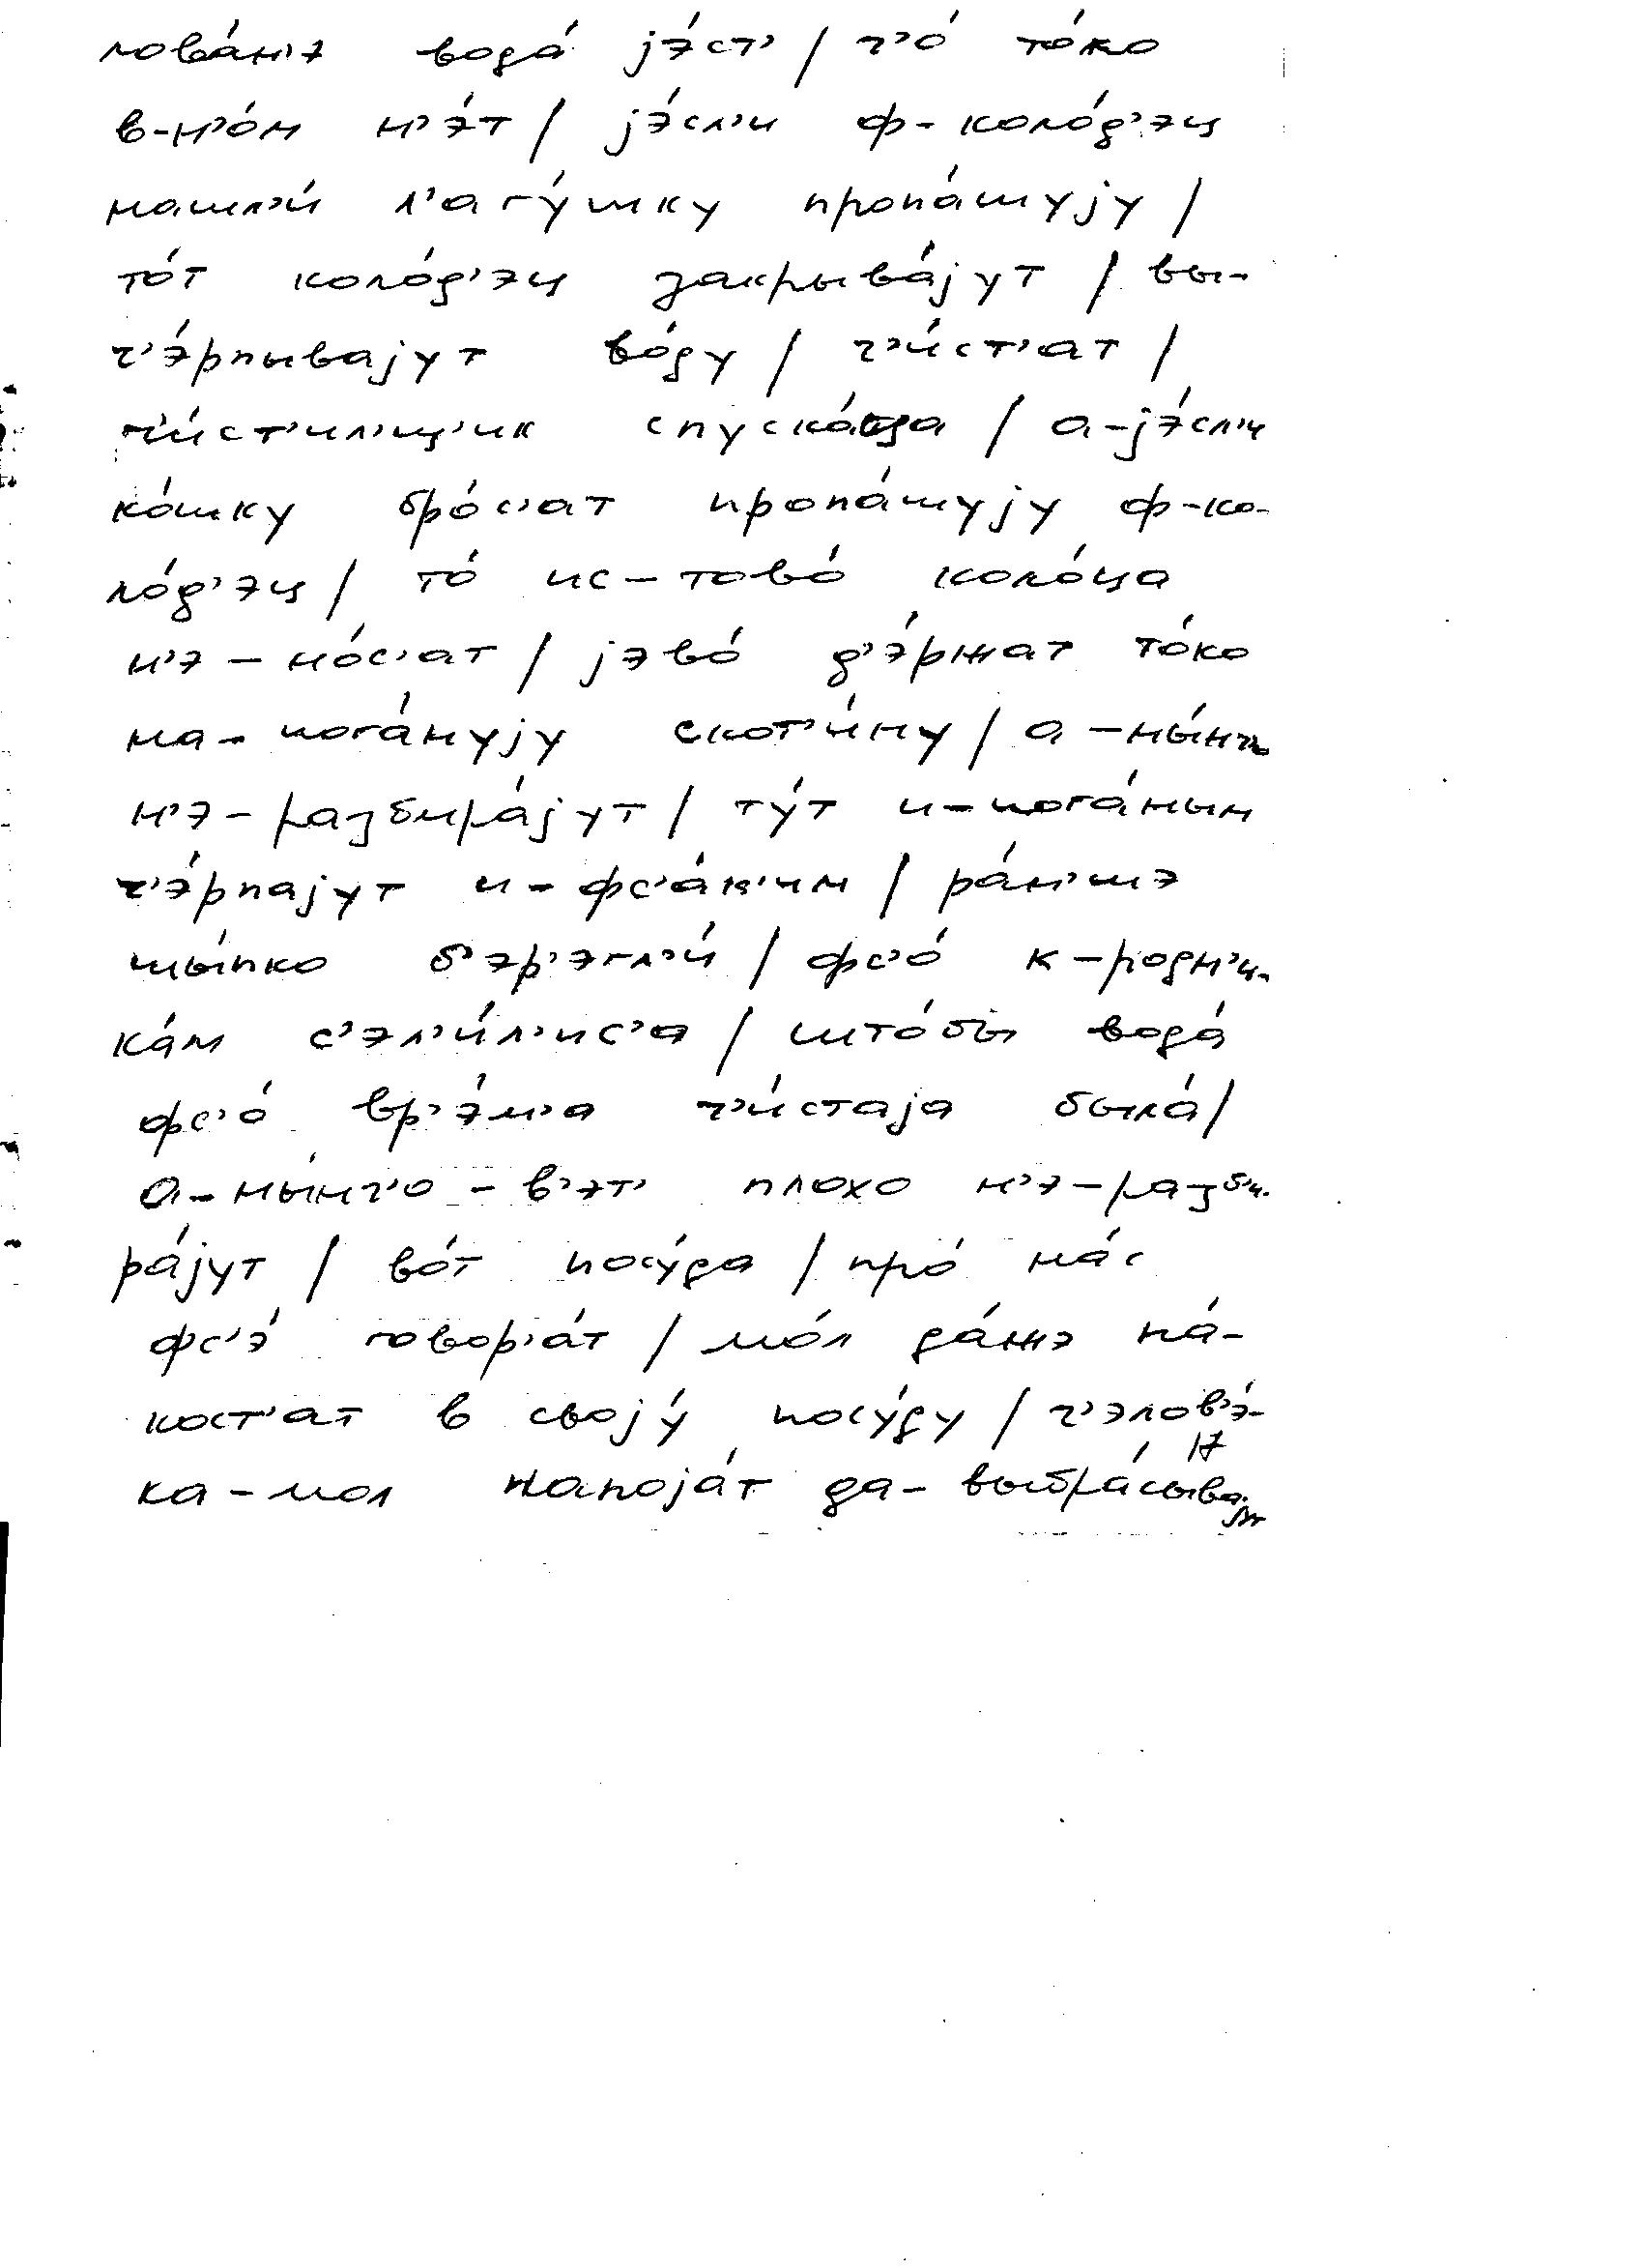 лова́н'э вода́ jэ́ст' / ч'о́ то́ко
в-н'о́м н'э́т / jэ́сл'и ф-коло́д'эц
нашл'и́ л'агу́шку пропа́шуjу /
то́т коло́д'эц закрыва́jут / вы-
ч'э́рпываjут во́ду / ч'и́ст'ат /
ч'и́ст'ил'щ'ик спуска́цца / а-jэ́сл'и
ко́шку бро́с'ат пропа́шуjу ф-ко-
ло́д'эц / то́ ис-тово́ коло́ца
н'э-но́с'ат / jэво́ д'э́ржат то́ко
на-пога́нуjу скот'и́ну / а-ны́нч'о
н'э-разбира́jут / ту́т и-пога́ным
ч'э́рпаjут и-фс'а́к'им / ра́н'шэ
шы́пко б'эр'эгл'и́ / фс'о́ к-родн'и-
ка́м с'эл'и́л'ис'а / што́бы вода́
фс'о́ вр'э́м'а ч'и́стаjа была́ /
а-ны́нч'о-в'эт' плохо н'э-разби-
ра́jут / во́т посу́да / про́ на́с
фс'э́ говор'а́т / мо́л да́жэ па́-
кост'ат в своjу́ посу́ду / ч'элов'э́-
17
ка-мол напоjа́т да-выбра́сываjут